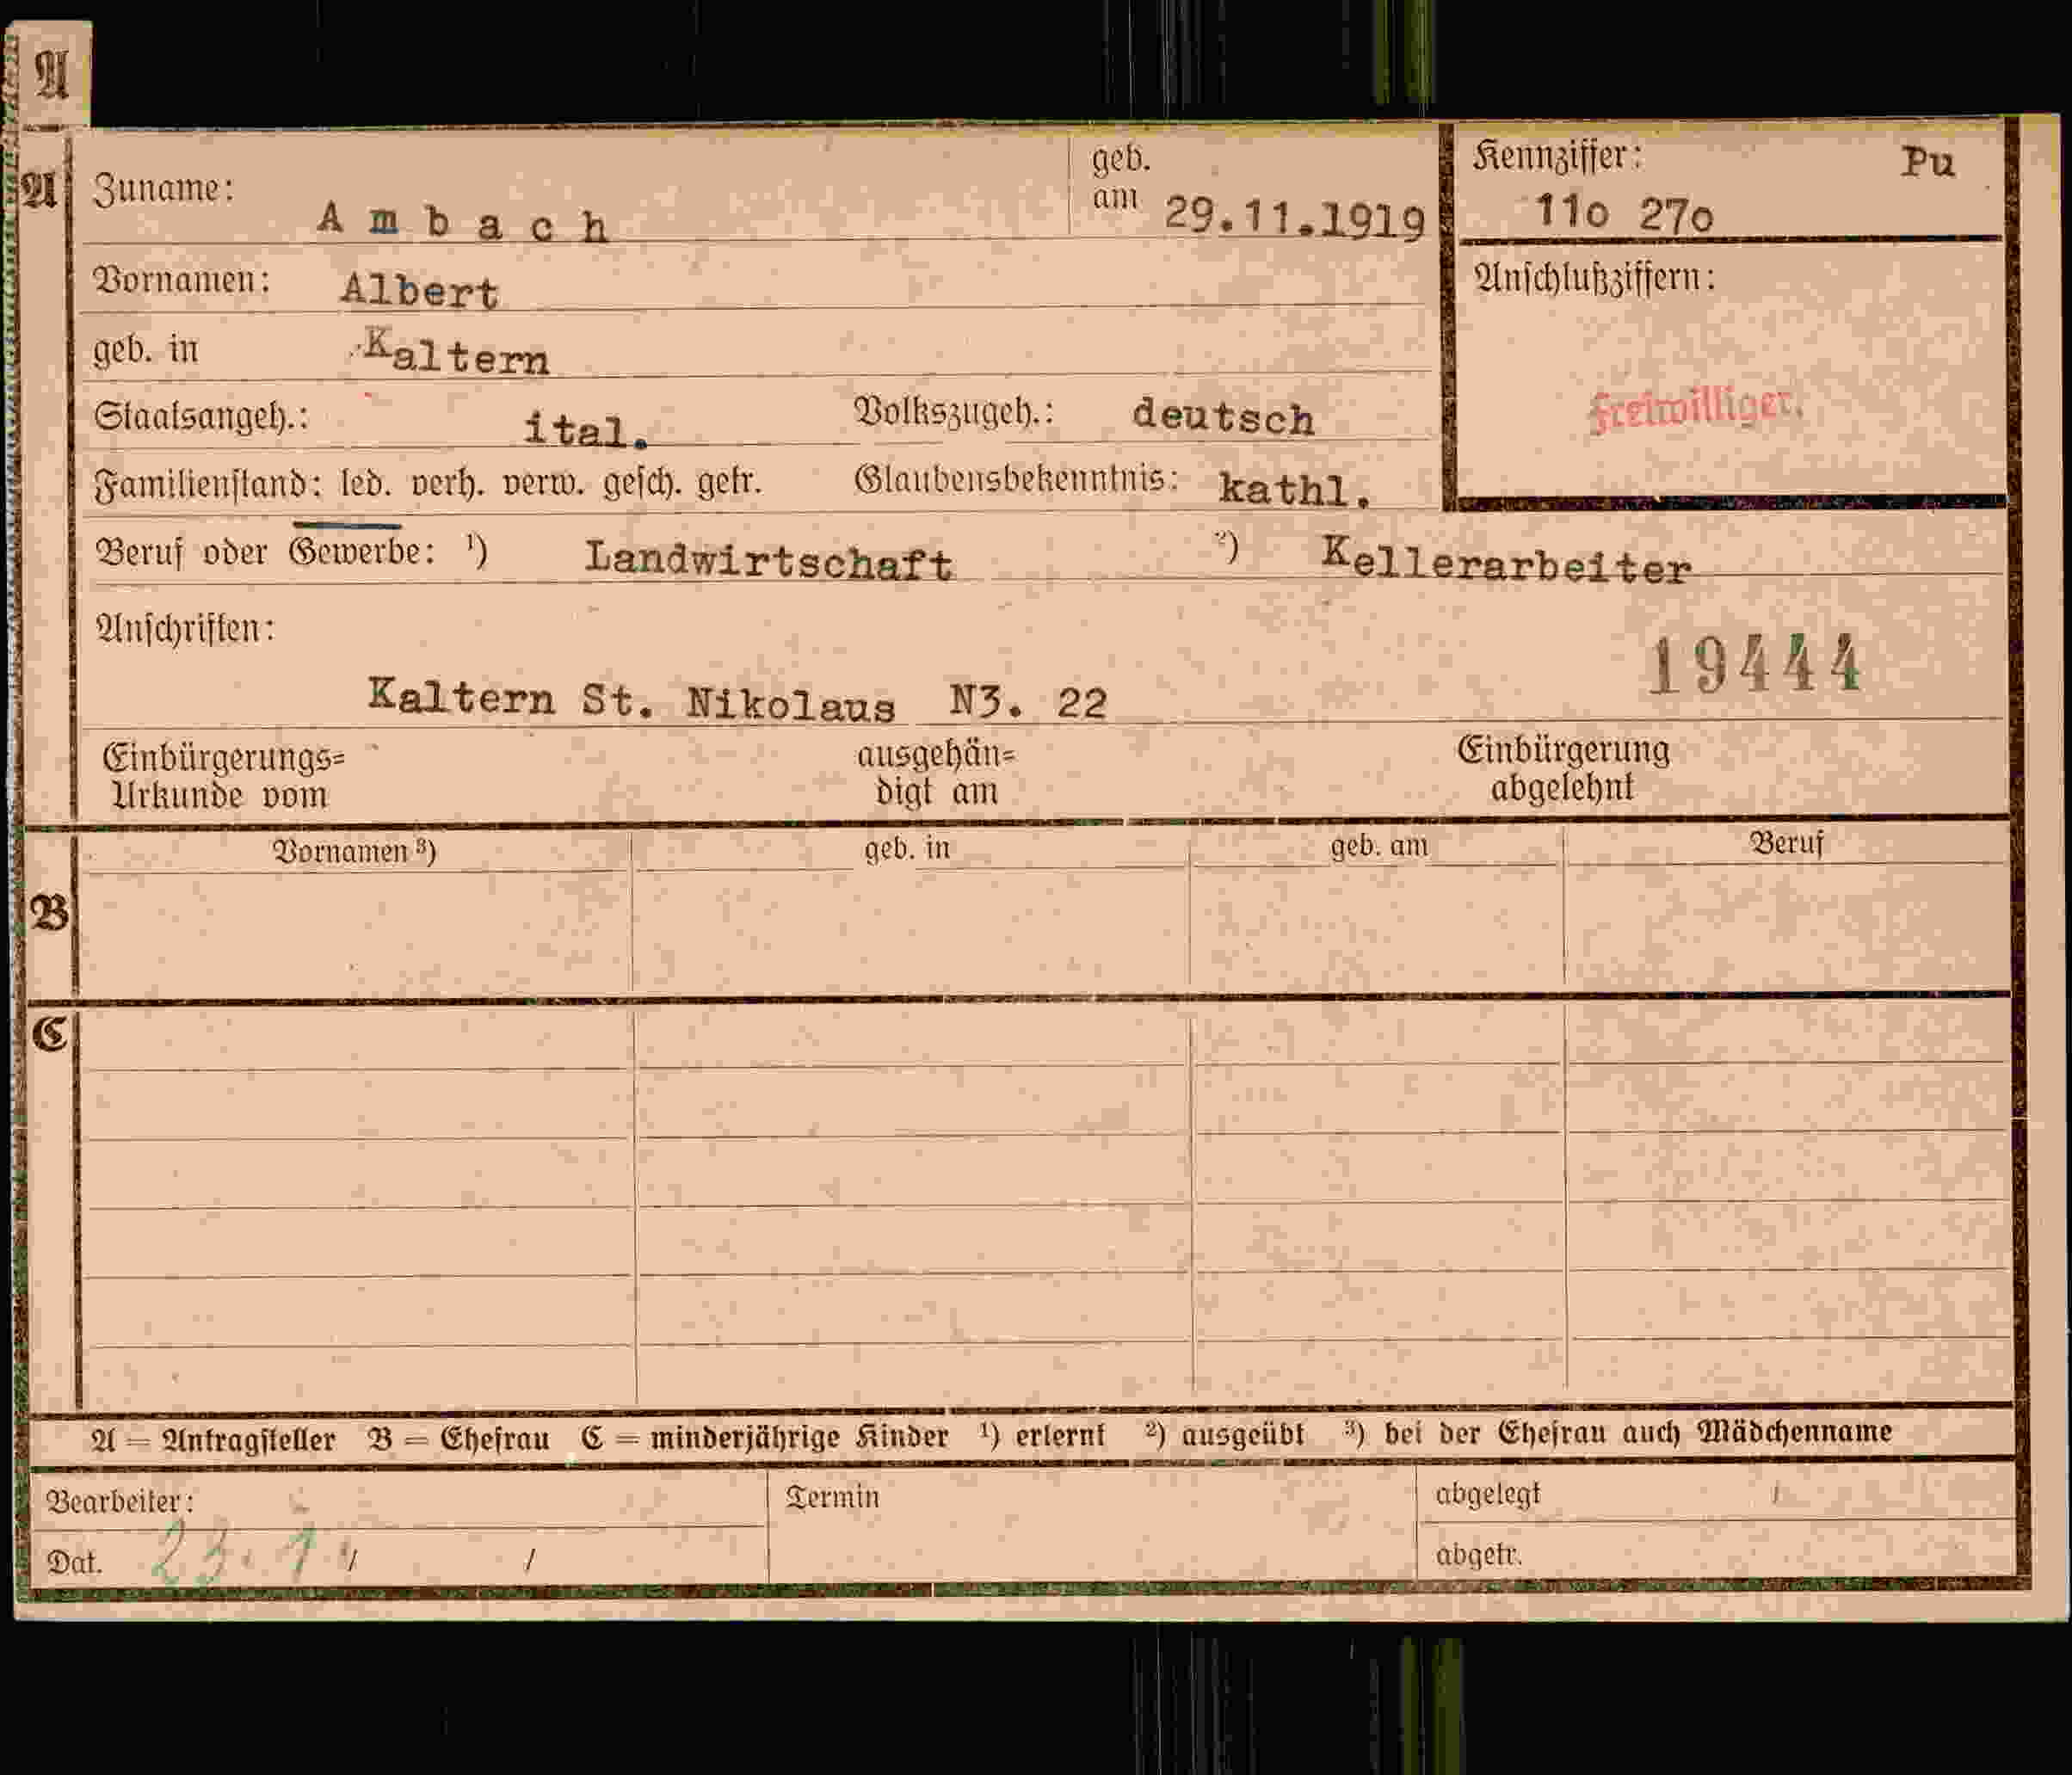 A
A
Zuname: A m b a c h
geb. am 29.11.1919
Kennziffer: Pu
11o 27o
Vornamen: Albert
Anschlußziffern:
geb. in Kaltern
Freiwilliger.
Staatsangeh.: ital. Volkszugeh.: deutsch
Familienstand: led. verh. verw. gesch. getr. Glaubensbekenntnis: kathl.
Beruf oder Gewerbe: ¹) Landwirtschaft ²) Kellerarbeiter
Anschriften:
19444
Kaltern St. Nikolaus N3. 22
Einbürgerungs= ausgehän= Einbürgerung
Urkunde vom digt am abgelehnt
B
Vornamen ³) geb. in geb. am Beruf
C
A = Antragsteller B = Ehefrau C = minderjährige Kinder ¹) erlernt ²) ausgeübt ³) bei der Ehefrau auch Mädchenname
Bearbeiter: Termin abgelegt
Dat. 23. / / abgetr.